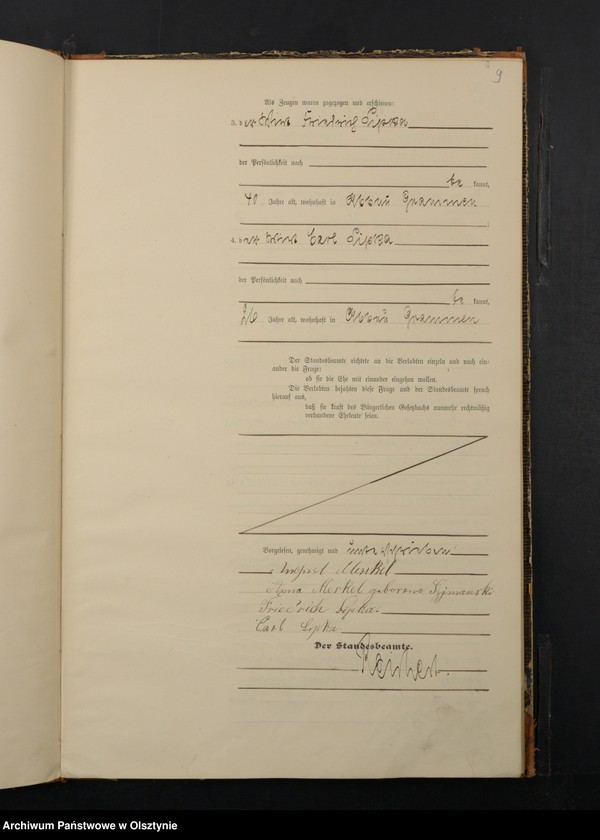 9
Als Zeugen waren zugezogen und erschienen:
3. der Wirt Friedrich Lipka
der Persönlichkeit nach
be kannt,
40 Jahre alt, wohnhaft in Abbau Grammen
4. der Wirt Carl Lipka
der Persönlichkeit nach
be kannt,
26 Jahre alt, wohnhaft in Abbau Grammen
Der Standesbeamte richtete an die Verlobten einzeln und nach ein-
ander die Frage:
ob sie die Ehe mit einander eingehen wollen.
Die Verlobten bejahten diese Frage und der Standesbeamte sprach
hierauf aus,
daß sie kraft des Bürgerlichen Gesetzbuchs nunmehr rechtmäßig
verbundene Eheleute seien.
Vorgelesen, genehmigt und unterschrieben
Merkel
Anna Merkel geborene Szimanski
Friedrich Lipka
Carl Lipka
Der Standesbeamte.
Archiwum Państwowe w Olsztynie